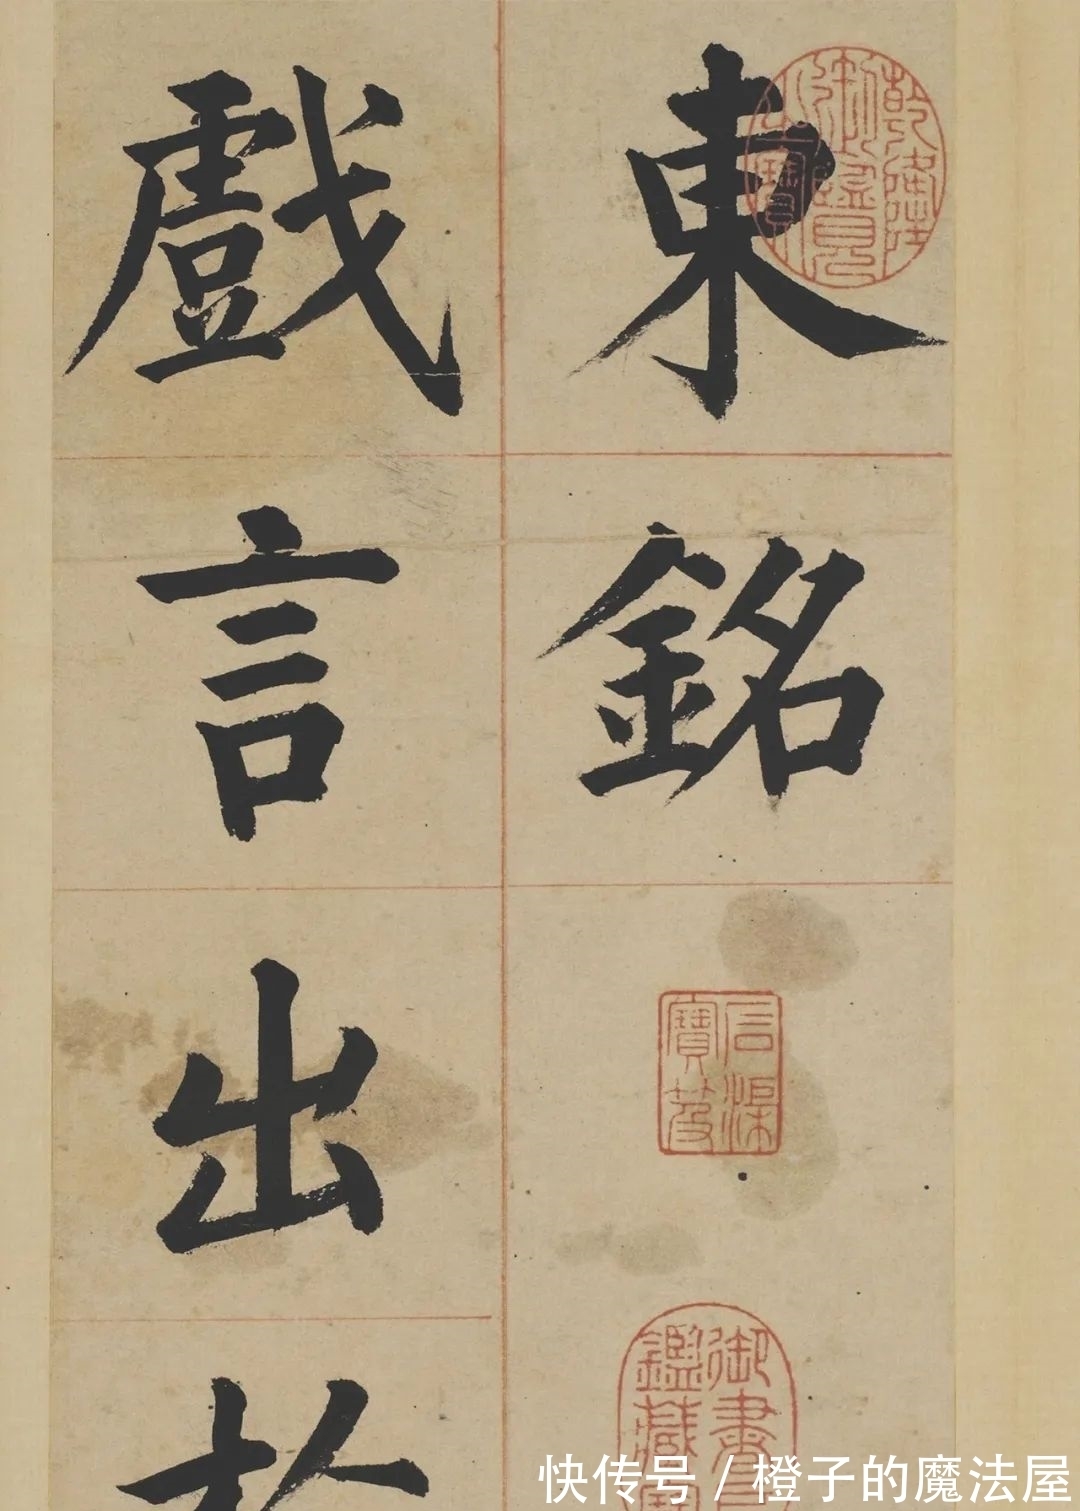 東銘
乾隆御覽之寶
石渠寶笈
御書
鑑藏
戲言出
快传号 / 橙子的魔法屋